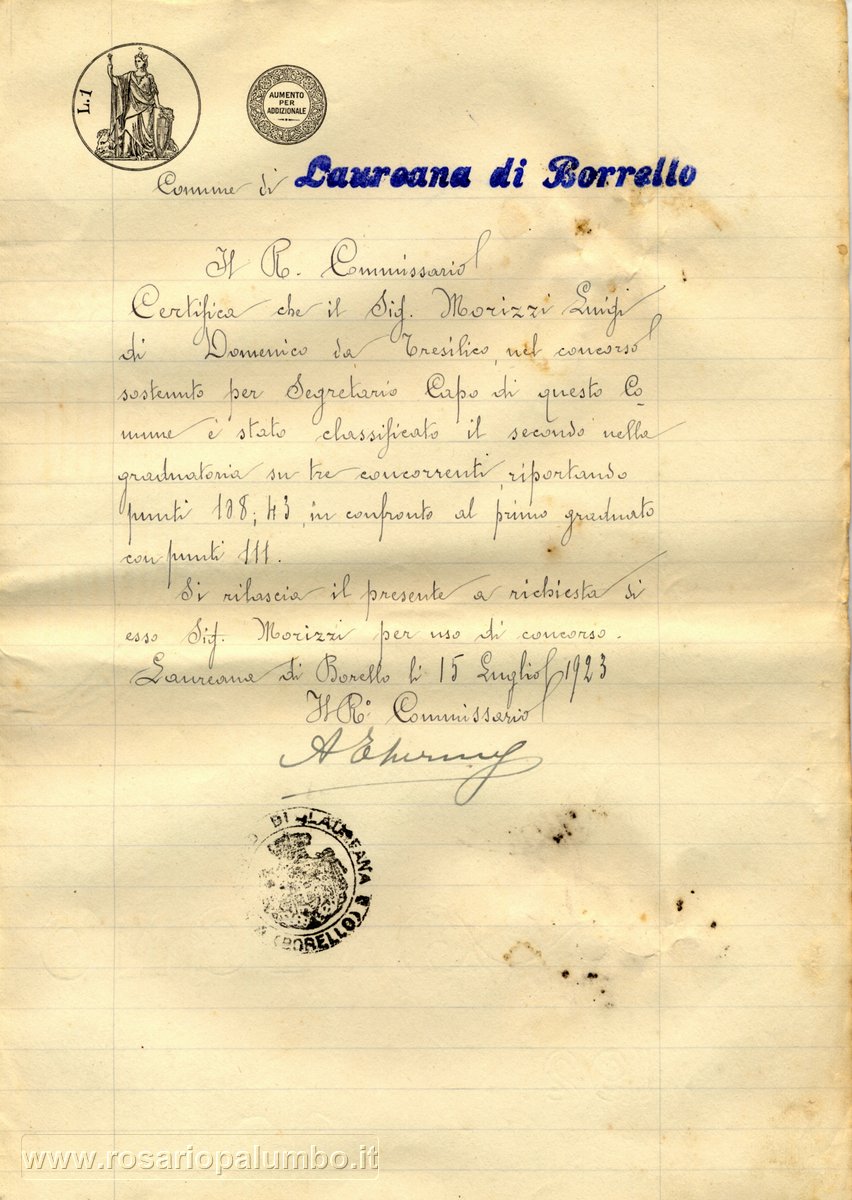 L.1
AUMENTO
PER
ADDIZIONALE
Comune di Laureana di Borrello
Il R. Commissario
Certifica che il Sig. Morizzi Luigi
di Domenico da Tresilico, nel concorso
sostenuto per Segretario Capo di questo Co-
mune è stato classificato il secondo nella
graduatoria su tre concorrenti, riportando
punti 108,43, in confronto al primo graduato
con punti 111.
Si rilascia il presente a richiesta di
esso Sig. Morizzi per uso di concorso.
Laureana di Borello li 15 Luglio 1923
Il R.° Commissario
DI LAUREANA
(BORELLO)
www.rosariopalumbo.it